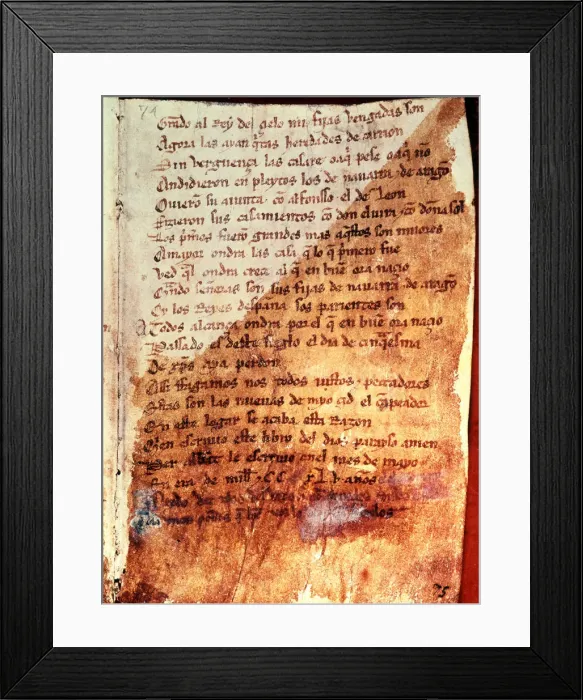 Grado al Rey del çielo mis fijas vengadas son
Agora las ayan q̃tas heredades de carrion
Sin verguença las casare o aq̃ pese o aq̃ nõ
Andidieron en pleytos los de nauarra ⋅ de aragõ
Ouieron su aiunta ⋅ cõ alfonsso el de Leon
Fizieron sus casamientos cõ don eluira ⋅ cõ doña sol
Los p̃meros fuerõ grandes mas aq̃stos son miiores
A mayor ondra las casa q̃ lo q̃ p̃mero fue
Ved q̃l ondra creçe al q̃ en buẽ ora naçio
Q̃ndo señoras son sus fijas de nauarra ⋅ de aragõ
Oy los Reyes despaña sos parientes son
A todos alcança ondra por el q̃ en buẽ ora naçio
Passado es deste sieglo el dia de cinq̃esma
De xp̃s aya perdon
Assi ffagamos nos todos iustos ⋅ peccadores
Estas son las nueuas de myo çid el cãpeador
En este logar se acaba esta Razon
Quien escriuio este libro del dios parayso amen
Per abbat le escriuio enel mes de mayo
En era de mill ⋅ CC xL v años